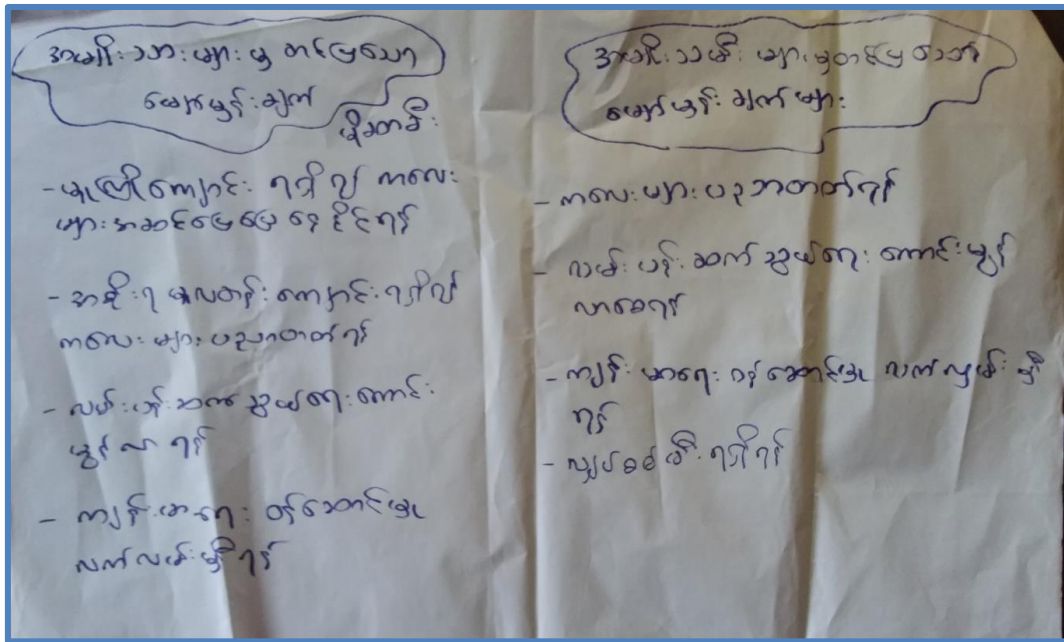 အမျိုးသားများမှ တင်ပြသော
မျှော်မှန်းချက်
- မူကြိုကျောင်း ရရှိ၍ ကလေး
များအဆင်ပြေပြေ နေနိုင်ရန်
- အစိုးရ မူလတန်းကျောင်းရရှိ၍
ကလေးများ ပညာတတ်ရန်
- လမ်းပန်းဆက်သွယ်ရေးကောင်း
မွန်လာရန်
- ကျန်းမာရေး ဝန်ဆောင်မှု
လက်လမ်းမှီရန်
အမျိုးသမီးများမှတင်ပြသော
မျှော်မှန်းချက်များ
- ကလေးများပညာတတ်ရန်
- လမ်းပန်းဆက်သွယ်ရေး ကောင်းမွန်
လာစေရန်
- ကျန်းမာရေးဝန်ဆောင်မှု လက်လှမ်းမှီ
ရန်
- လျှပ်စစ်မီးရရှိရန်